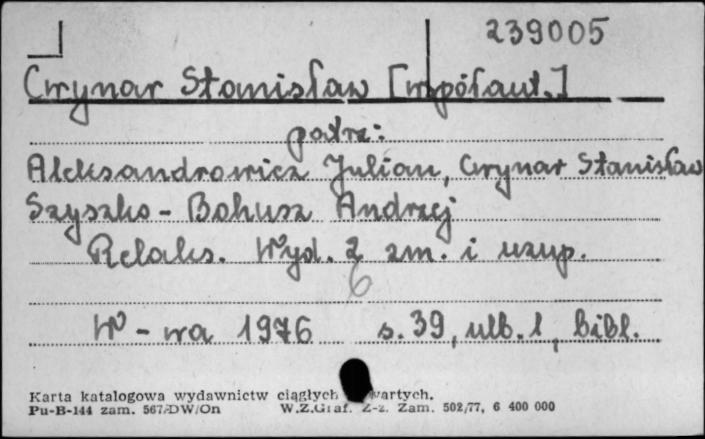 239005
Cwynar Stanisław [współaut.]
patrz:
Aleksandrowicz Julian, Cwynar Stanisław
Szyszko-Bohusz Andrzej
Relaks. Wyd. 2 zm. i uzup.
6
W-wa 1976 s. 39, ulb. 1, bibl.
Karta katalogowa wydawnictw ciągłych wartych.
Pu-B-144 zam. 567/DW/On W.Z.Graf. Z-z. Zam. 502/77, 6 400 000